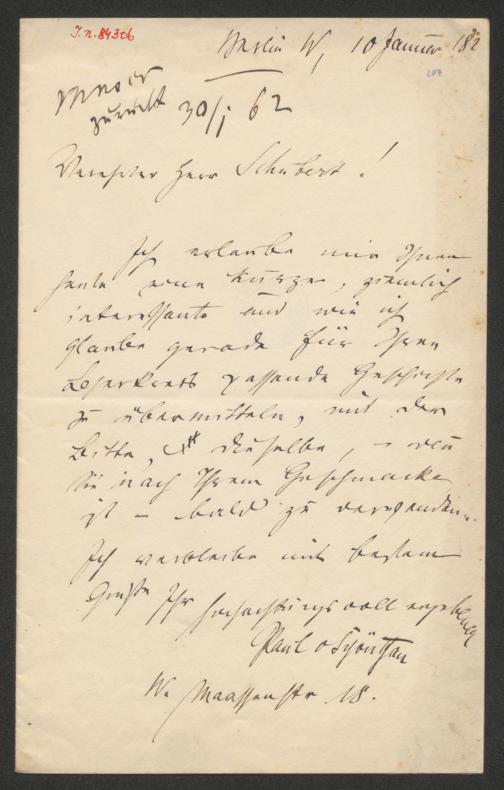 I.n. 84306
Berlin W, 10 Januar 182
207
zurück 30/I 62
Verehrter Herr Schubert!
Ich erlaube mir Ihnen
heute eine kurze, ziemlich
interessante und wie ich
glaube gerade für Ihren
Leserkreis passende Geschichte
zu übermitteln, mit der
Bitte, dieselbe, – wenn
sie nach Ihrem Geschmacke
ist – bald zu verwenden.
Ich verbleibe mit bestem
Gruße Ihr hochachtungsvoll ergebener
Paul v Schönthan
W. Maassenstr 18.